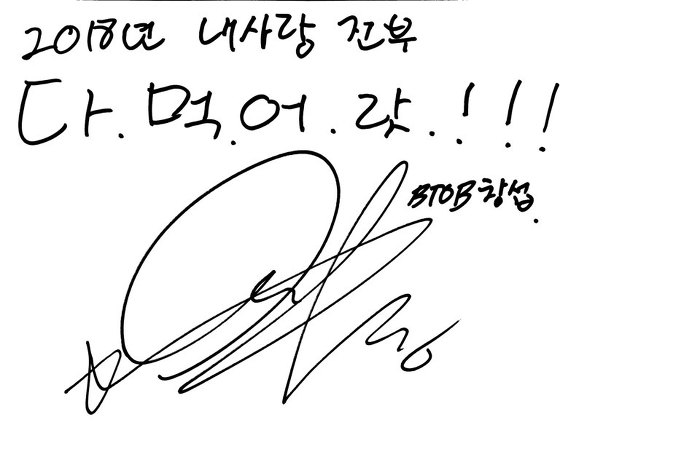 2018년 내사랑 전부
다.먹.어.랏.!!!
BTOB창섭.